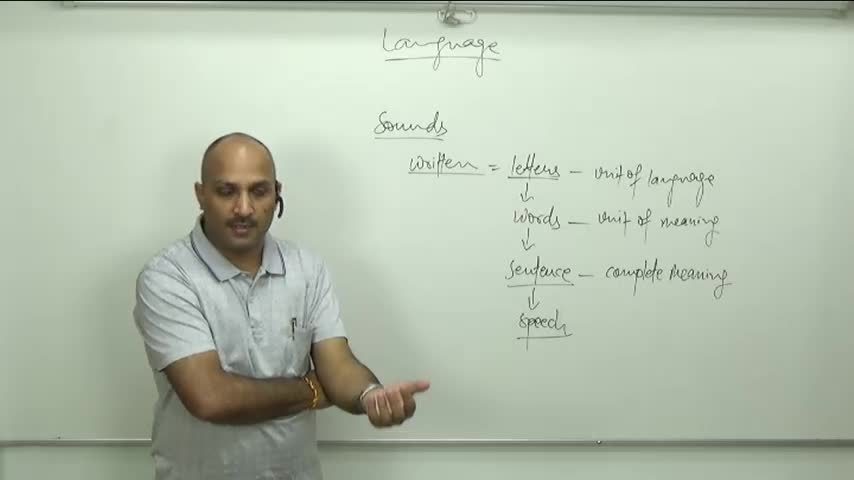 Language
Sounds
written = letters - unit of language
↓
words - unit of meaning
↓
sentence - complete meaning
↓
speech